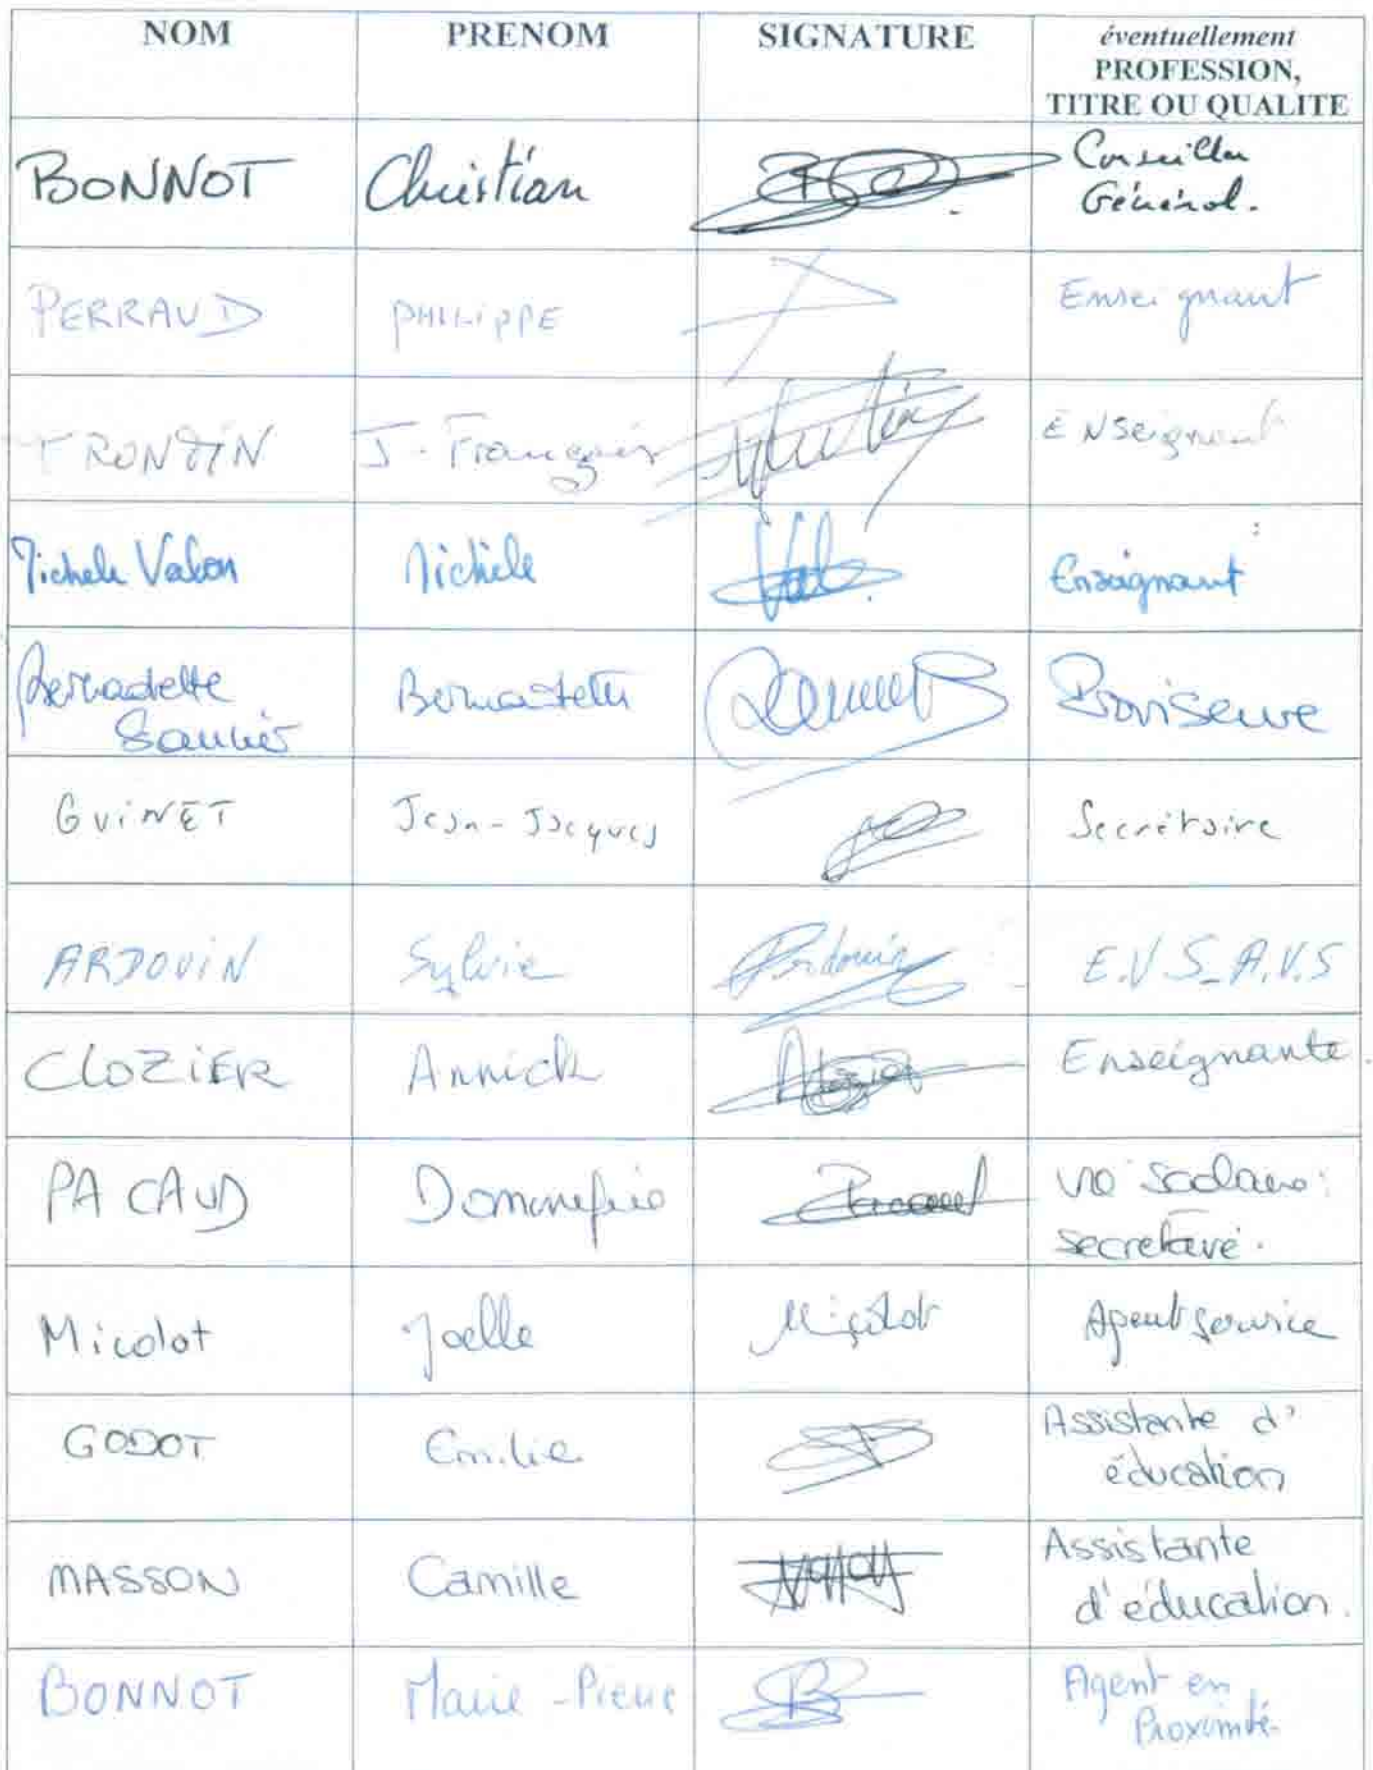 NOM PRENOM SIGNATURE éventuellement
PROFESSION,
TITRE OU QUALITE
BONNOT Christian Conseiller
Général.
PERRAUD PHILIPPE Enseignant
J-François ENSeignant
Michele Valon Michèle Enseignant
Bernadette
Saunier
Bernadette Proviseure
GUiNET Jean-Jacques Secrétaire
ARDOUiN Sylvie Ardouin E.V.S_A.V.S
CLOZiER Annick Enseignante.
PACAUD Dominique Pacaud vie scolaire:
secretaire.
Micolot Joelle Micolot Agent service
GODOT Emilie Assistante d'
éducation
MASSON Camille Assistante
d'éducation.
BONNOT Marie-Pierre Agent en
Proximité